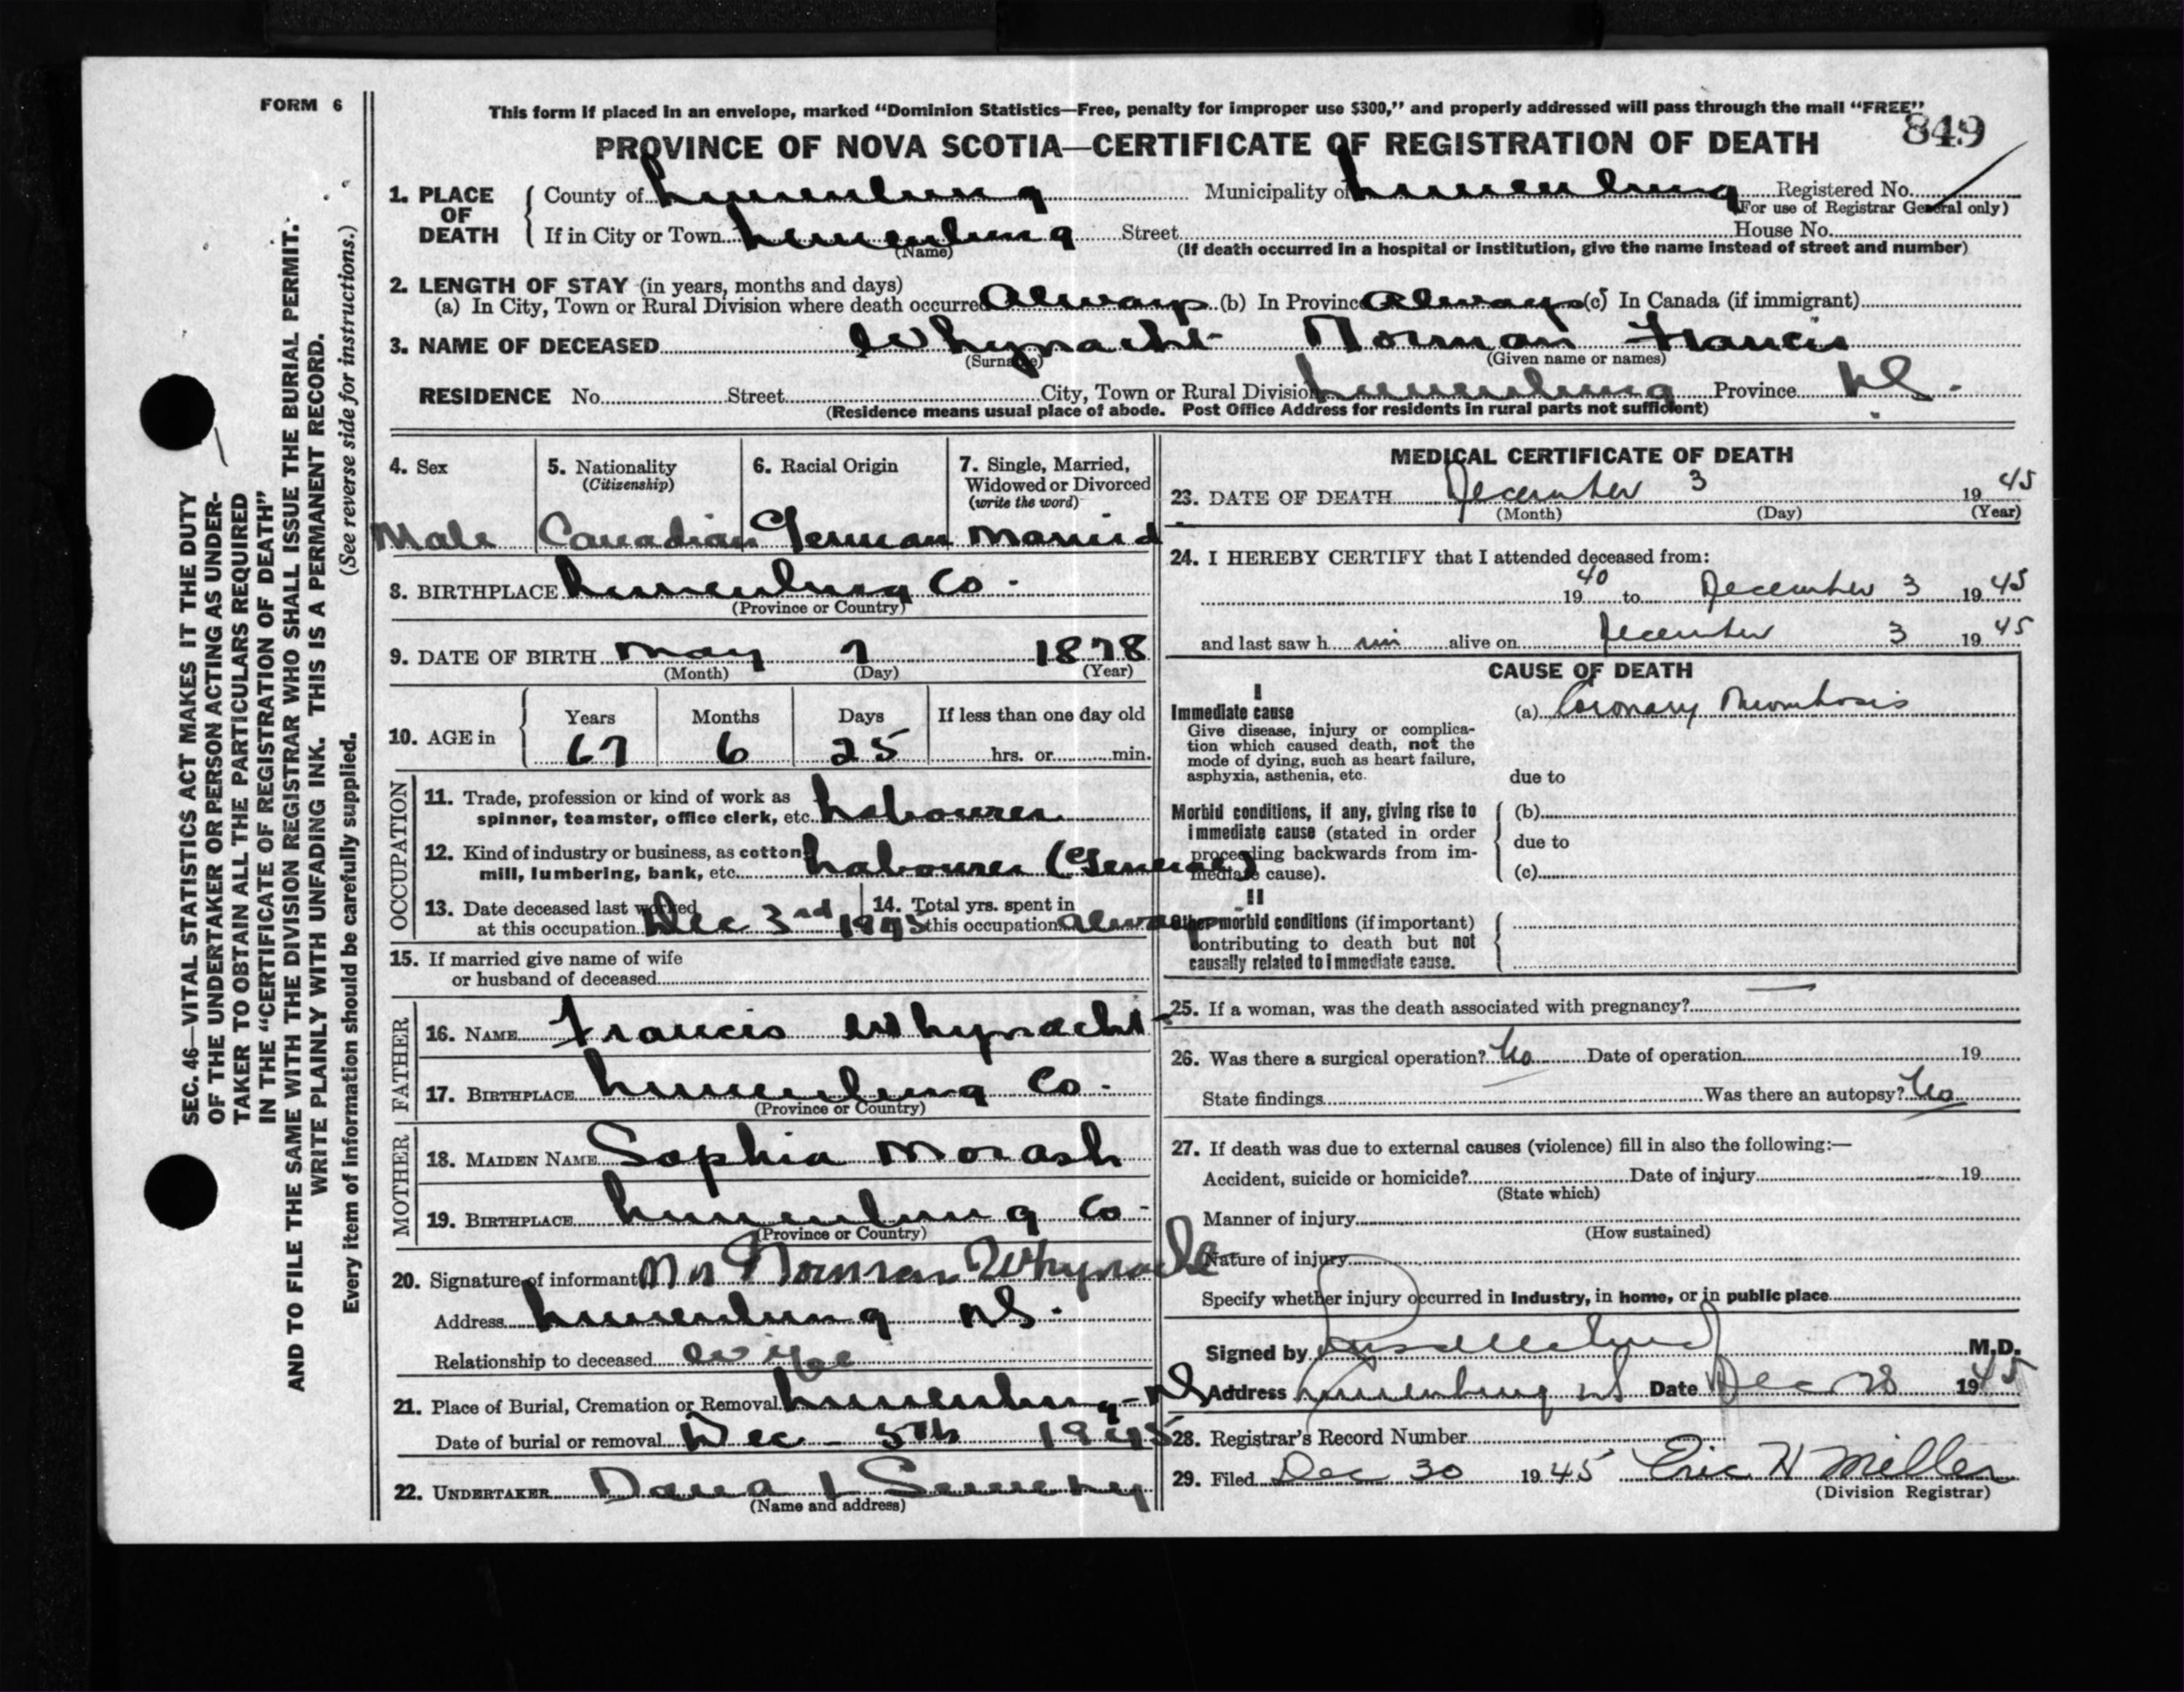 FORM 6
This form if placed in an envelope, marked “Dominion Statistics—Free, penalty for improper use $300,” and properly addressed will pass through the mail “FREE”
849
PROVINCE OF NOVA SCOTIA—CERTIFICATE OF REGISTRATION OF DEATH
1. PLACE OF DEATH
County of Lunenburg Municipality of Lunenburg Registered No.
(For use of Registrar General only)
If in City or Town Lunenburg Street House No.
(Name) (If death occurred in a hospital or institution, give the name instead of street and number)
2. LENGTH OF STAY (in years, months and days)
(a) In City, Town or Rural Division where death occurred Always (b) In Province Always (c) In Canada (if immigrant)
3. NAME OF DECEASED Whynacht Norman Francis
(Surname) (Given name or names)
RESIDENCE No. Street City, Town or Rural Division Lunenburg Province NS.
(Residence means usual place of abode. Post Office Address for residents in rural parts not sufficient)
4. Sex
Male
5. Nationality
(Citizenship)
Canadian
6. Racial Origin
German
7. Single, Married,
Widowed or Divorced
(write the word)
Married
8. BIRTHPLACE Lunenburg Co.
(Province or Country)
9. DATE OF BIRTH May 7 1878
(Month) (Day) (Year)
10. AGE in
Years Months Days If less than one day old
67 6 25 hrs. or min.
OCCUPATION
11. Trade, profession or kind of work as
spinner, teamster, office clerk, etc. Labourer
12. Kind of industry or business, as cotton
mill, lumbering, bank, etc. Labourer (General)
13. Date deceased last worked
at this occupation Dec 3rd 1945
14. Total yrs. spent in
this occupation always
15. If married give name of wife
or husband of deceased
FATHER
16. NAME Francis Whynacht
17. BIRTHPLACE Lunenburg Co.
(Province or Country)
MOTHER
18. MAIDEN NAME Sophia Morash
19. BIRTHPLACE Lunenburg Co.
(Province or Country)
20. Signature of informant Mrs Norman Whynacht
Address Lunenburg NS.
Relationship to deceased Wife
21. Place of Burial, Cremation or Removal Lunenburg - NS
Date of burial or removal Dec - 5th 1945
22. UNDERTAKER Dana L Sweeny
(Name and address)
MEDICAL CERTIFICATE OF DEATH
23. DATE OF DEATH December 3 1945
(Month) (Day) (Year)
24. I HEREBY CERTIFY that I attended deceased from:
1940 to December 3 1945
and last saw him alive on December 3 1945
CAUSE OF DEATH
I
Immediate cause
Give disease, injury or complica-
tion which caused death, not the
mode of dying, such as heart failure,
asphyxia, asthenia, etc.
(a) Coronary Thrombosis
due to
Morbid conditions, if any, giving rise to
immediate cause (stated in order
proceeding backwards from im-
mediate cause).
(b)
due to
(c)
II
Other morbid conditions (if important)
contributing to death but not
causally related to immediate cause.
25. If a woman, was the death associated with pregnancy? —
26. Was there a surgical operation? No Date of operation 19
State findings Was there an autopsy? No
27. If death was due to external causes (violence) fill in also the following:—
Accident, suicide or homicide? Date of injury 19
(State which)
Manner of injury
(How sustained)
Nature of injury
Specify whether injury occurred in industry, in home, or in public place
Signed by M.D.
Address Lunenburg NS Date Dec 28 1945
28. Registrar’s Record Number
29. Filed Dec 30 1945 Eric H Miller
(Division Registrar)
SEC. 46—VITAL STATISTICS ACT MAKES IT THE DUTY
OF THE UNDERTAKER OR PERSON ACTING AS UNDER-
TAKER TO OBTAIN ALL THE PARTICULARS REQUIRED
IN THE “CERTIFICATE OF REGISTRATION OF DEATH”
AND TO FILE THE SAME WITH THE DIVISION REGISTRAR WHO SHALL ISSUE THE BURIAL PERMIT.
WRITE PLAINLY WITH UNFADING INK. THIS IS A PERMANENT RECORD.
Every item of information should be carefully supplied. (See reverse side for instructions.)